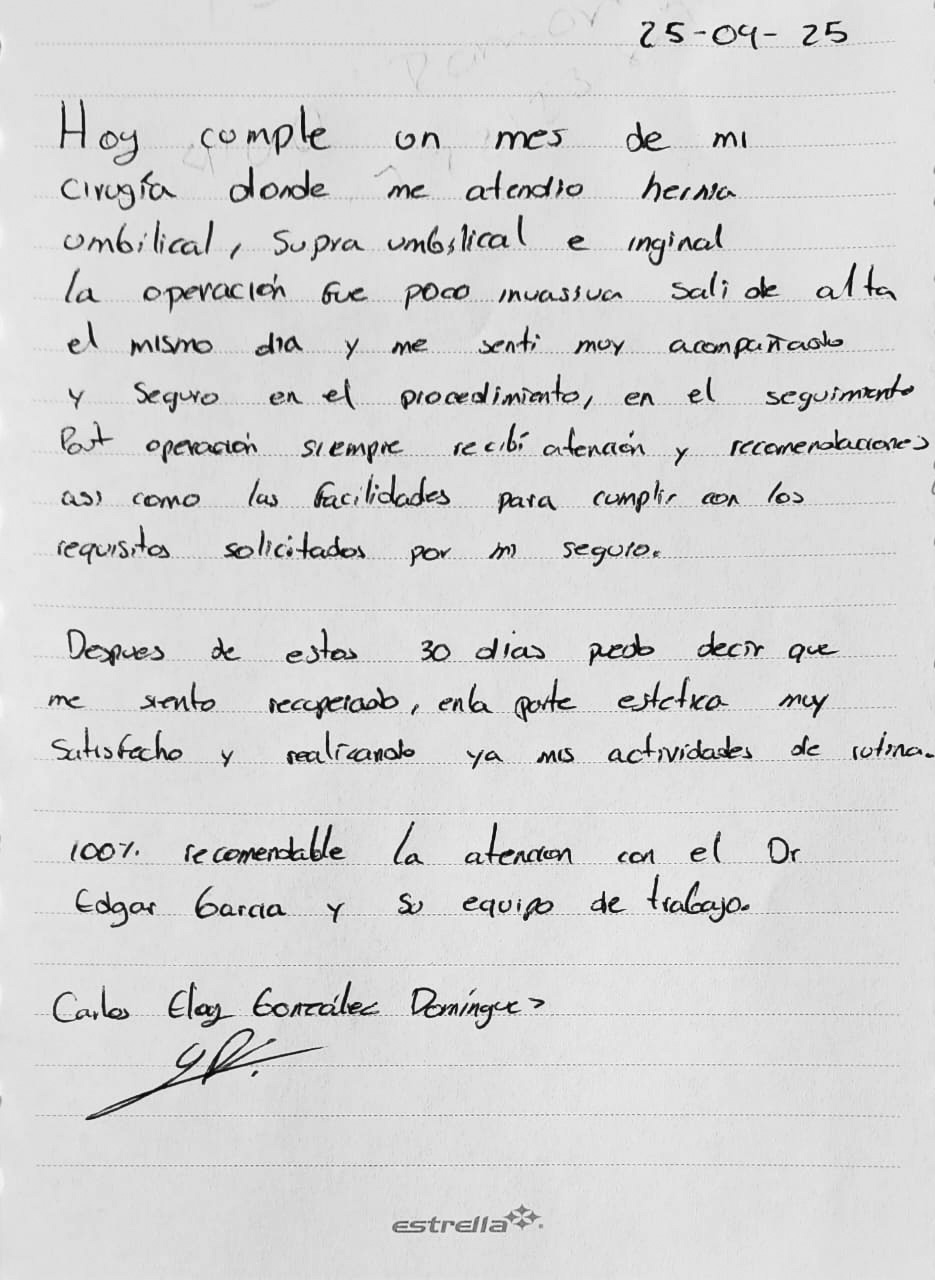 25-09-25
Hoy cumple un mes de mi
cirugía donde me atendio hernia
umbilical, supra umbilical e inginal
la operación fue poco invassiva sali de alta
el mismo dia y me senti muy acompañado
y seguro en el procedimiento, en el seguimiento
Post operación siempre recibí atención y recomendaciones
asi como las facilidades para cumplir con los
requisitos solicitados por mi seguro.
Despues de estos 30 dias puedo decir que
me siento recuperado, en la parte estetica muy
satisfecho y realizando ya mis actividades de rutina.
100% recomendable la atencion con el Dr
Edgar Garcia y su equipo de trabajo.
Carlos Eloy González Domínguez
estrella